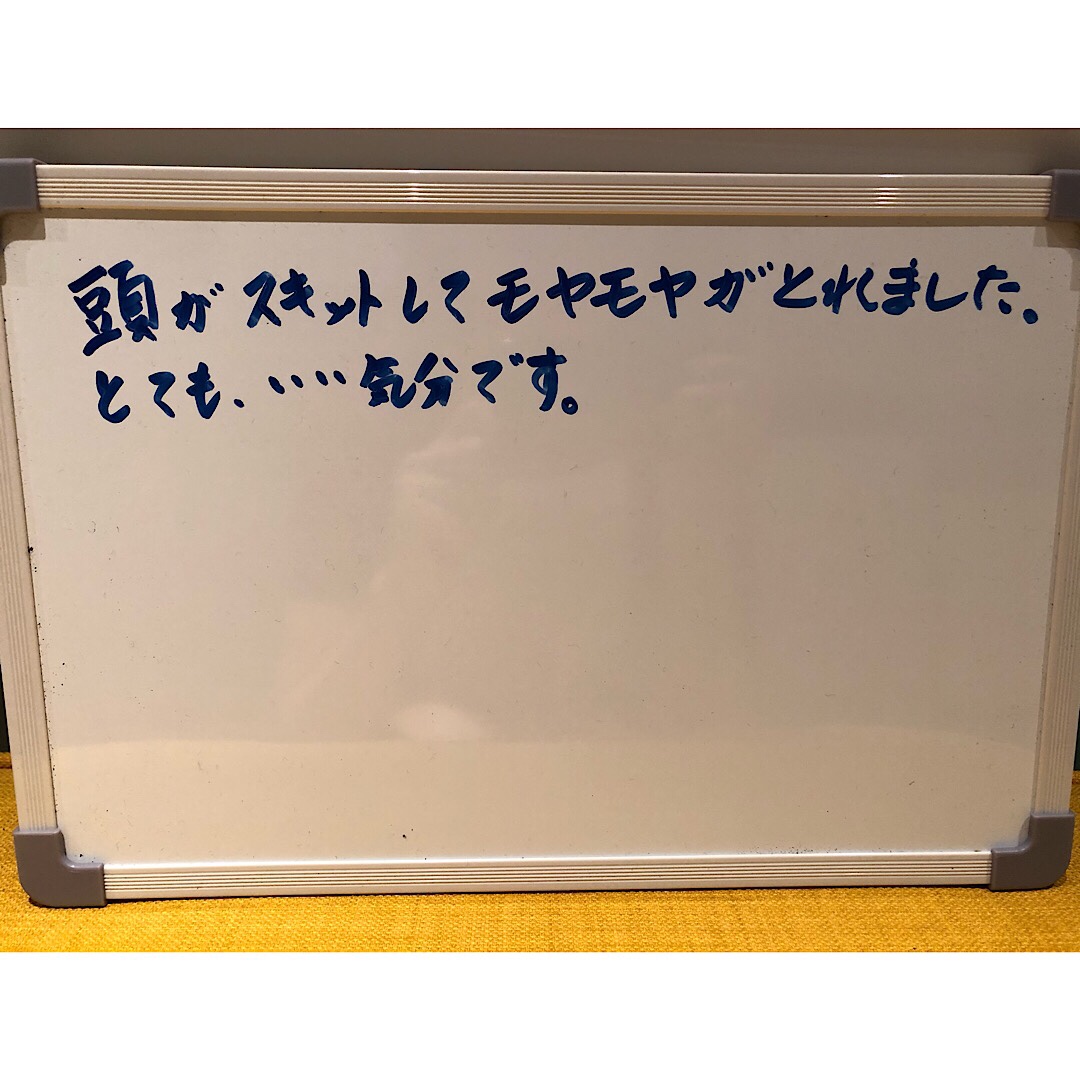 頭がスキットしてモヤモヤがとれました。
とても、いい気分です。